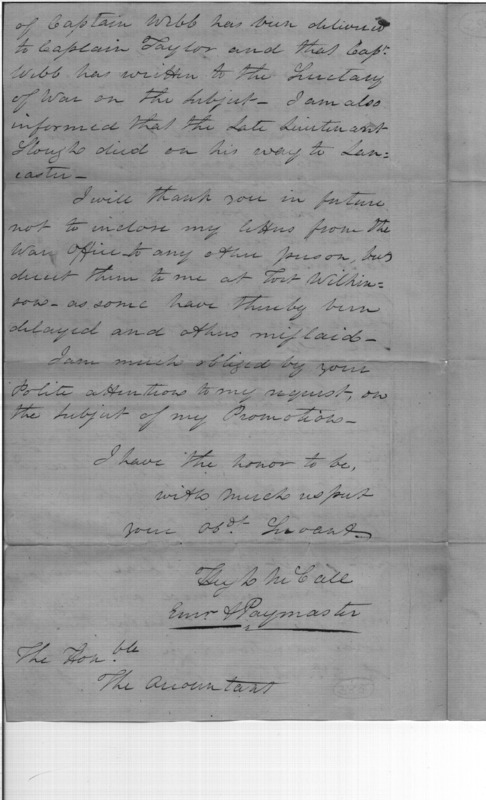 of Captain Webb has been delivered
to Captain Taylor and that Capt.
Webb has written to the Secretary
of War on the subject - I am also
informed that the Late Lieutenant
Hough died on his way to Lan=
caster -
I will thank you in future
not to inclose my letters from the
War Office to any other person, but
direct them to me at Fort Wilkin=
son - as some have thereby been
delayed and others mislaid -
I am much obliged by your
Polite attentions to my request, on
the subject of my Promotion -
I have the honor to be,
with much respect
your Obdt. Servant
Hugh McCall
& Paymaster
The Honble
The Accountant